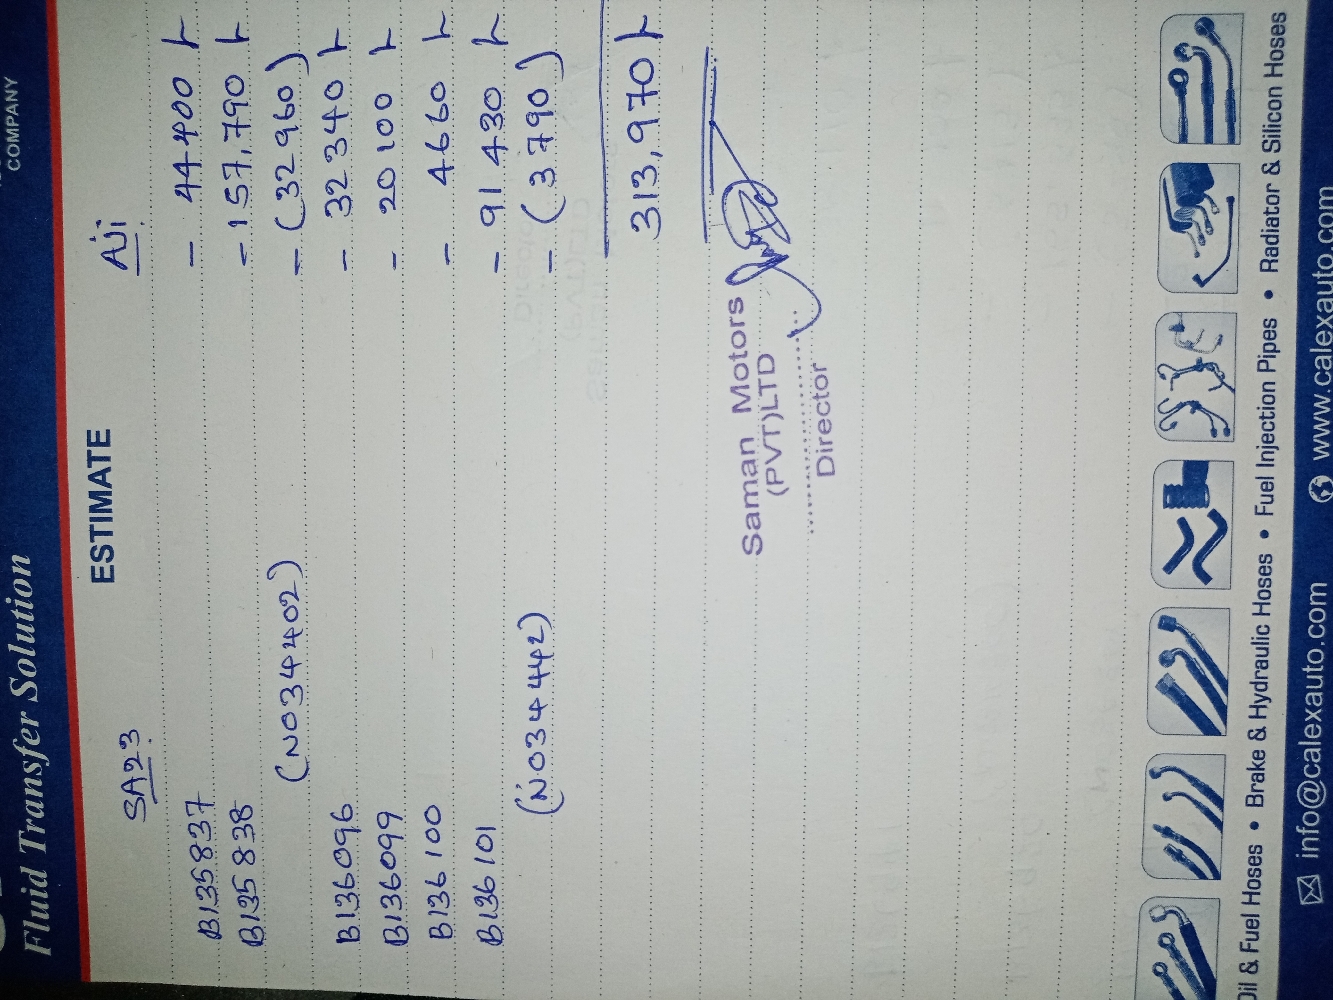 COMPANY
Fluid Transfer Solution
ESTIMATE
SA23. AJi
B135837 - 44400
B135838 - 157,790
(N034402) - (32960)
B136096 - 32340
B136099 - 20100
B136100 - 4660
B136101 - 91430
(N034442) - (3790)
313,970
Saman Motors
(PVT)LTD
Director
Oil & Fuel Hoses • Brake & Hydraulic Hoses • Fuel Injection Pipes • Radiator & Silicon Hoses
info@calexauto.com www.calexauto.com